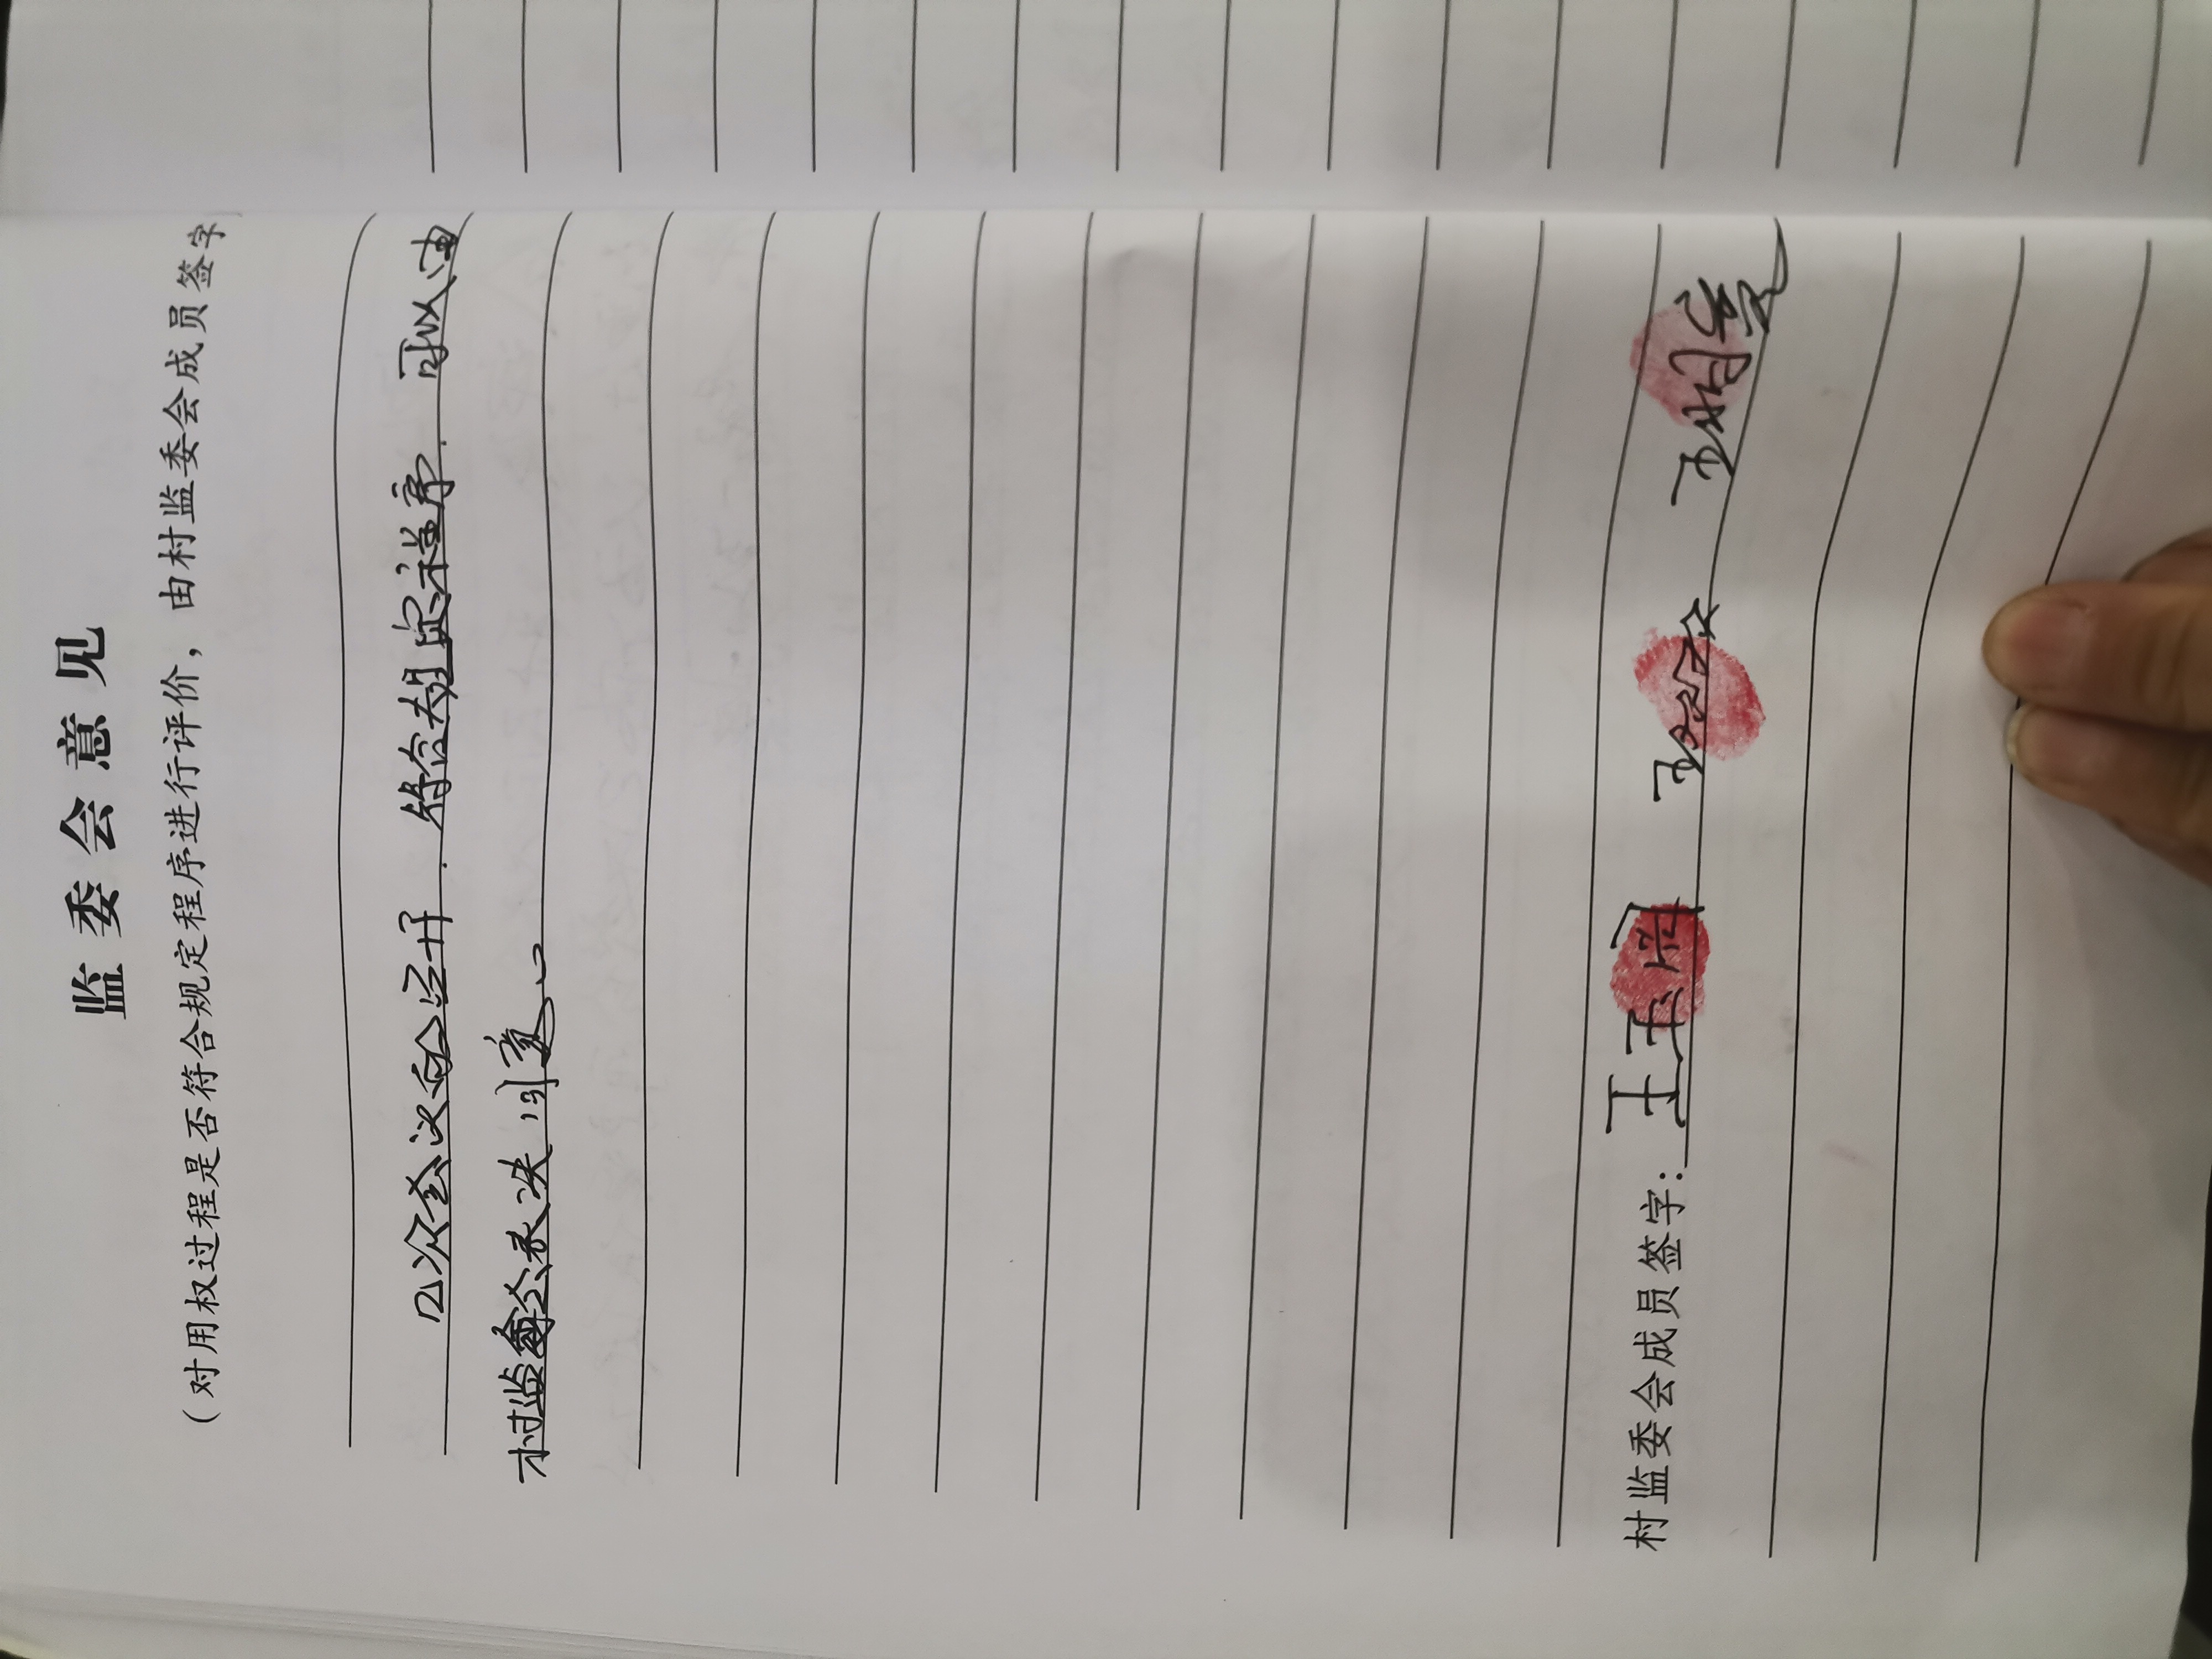 监委会意见
（对用权过程是否符合规定程序进行评价，由村监委会成员签字
几次会议的召开，符合规定程序，可以由
村监委会表决同意。
村监委会成员签字：王玉